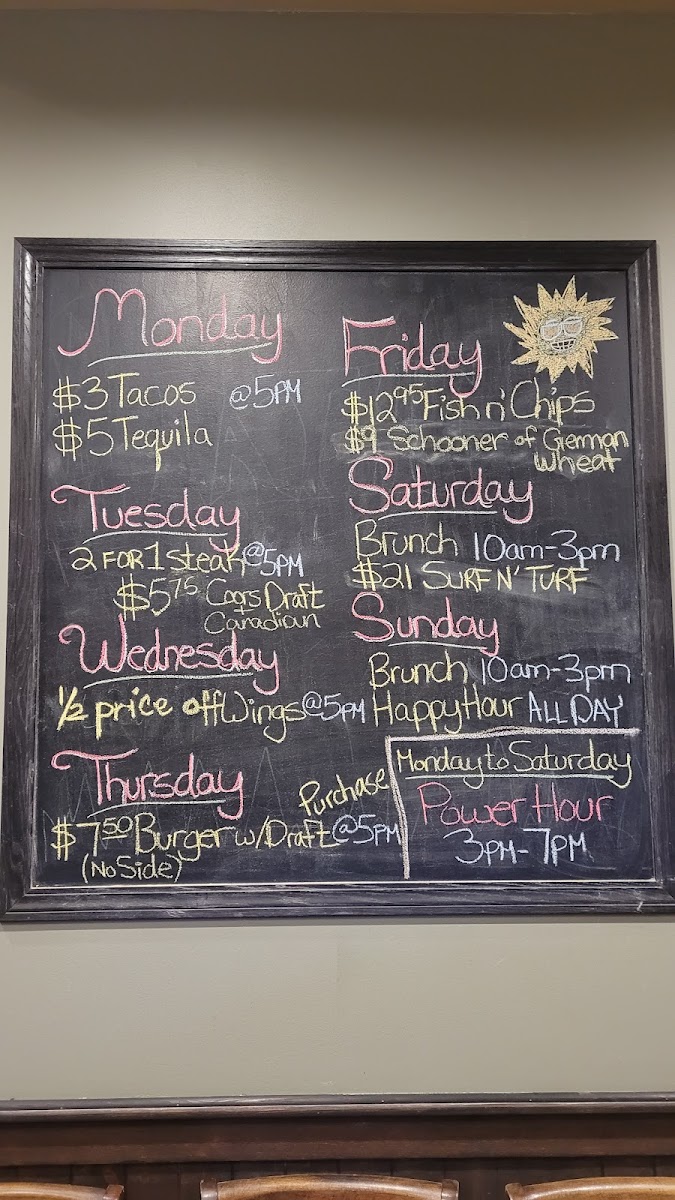 Monday
$3 Tacos @5PM
$5 Tequila
Tuesday
2 FOR 1 steak @5PM
$5.75 Coors Draft
+
Canadian
Wednesday
1/2 price off Wings @5PM
Thursday
Purchase
$7.50 Burger w/Draft @5PM
(No Side)
Friday
$12.95 Fish n' Chips
$9 Schooner of German
Wheat
Saturday
Brunch 10am-3pm
$21 SURF N' TURF
Sunday
Brunch 10am-3pm
Happy Hour ALL DAY
Monday to Saturday
Power Hour
3PM-7PM